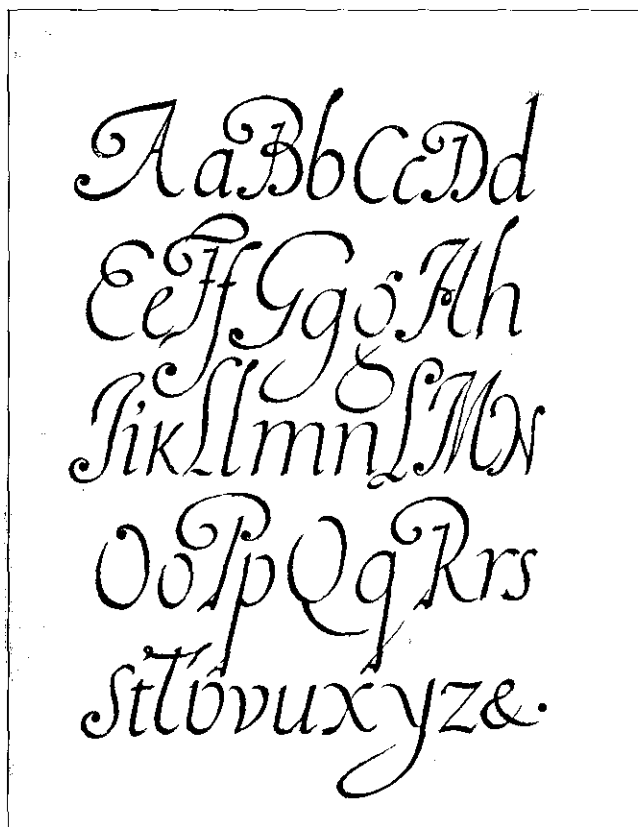 AaBbCcDd
EeFfGggHh
IikLlmnLMN
OoPpQqRrs
StTvvuxyz&.